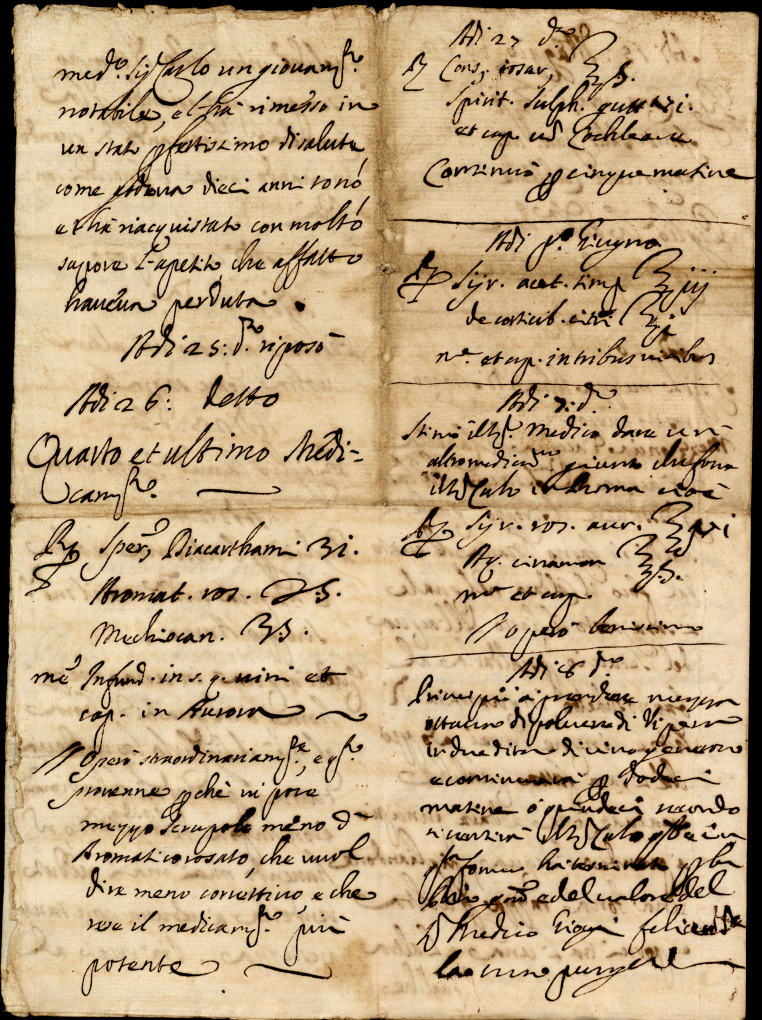 med.º Sig.r Carlo un giovam.to
notabile, e l'ha rimesso in
un stato p̱fettissimo di salute
come godeva dieci anni sono
et ha riacquistato con molto
sapore l'apetito che affatto
haveva perduto.
Adi 25: d.º riposò
Adi 26: detto
Quarto et ultimo Medi=
cam.to
℞ Spec. Diacarthami ʒi.
Aromat. ros. ℈.s.
Mechiocan. ʒs.
m.e Infund. in s. q. vini et
cap. in Aurora
Operò straordinariam.te, e q.to
provenne p̱ chè vi pose
mezzo scrupolo meno d
Aromatico rosato, che vuol
dire meno correttivo, e che
rese il medicam.to più
potente
Adi 27 d.º
℞ Cons. rosar. ʒs.
Spirit. Sulph. gutt. vi.
et cap. cũ Cochleare
Continuò p̱ cinque matine
Adi p.º Giugno
℞ Syr. acet. simp. ℥iij
de corticib. citri ℥i
m.e et cap. in tribus vicibus
Adi d.º
Stimò il S.r Medico dare un
altro medicam.to
il S.r Carlo in Roma cioè
℞ Syr. ros. aur. ℥vi
Aq. cinamom ℥s.
m.e et cap.
Operò benissimo
Adi 6 d.º
Principiò a prendere mezza
ottava di polvere di Vipera
in due dita di vino generoso
e continuerà p̱ dodeci
matine
il S.r Carlo
e del valore del
S.r Medico
la cura